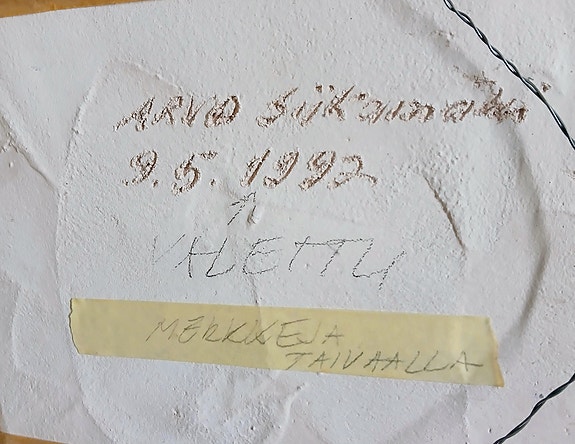 ARVO Siikamäki
9.5.1992
VALETTU
MERKKEJA
TAIVAALLA